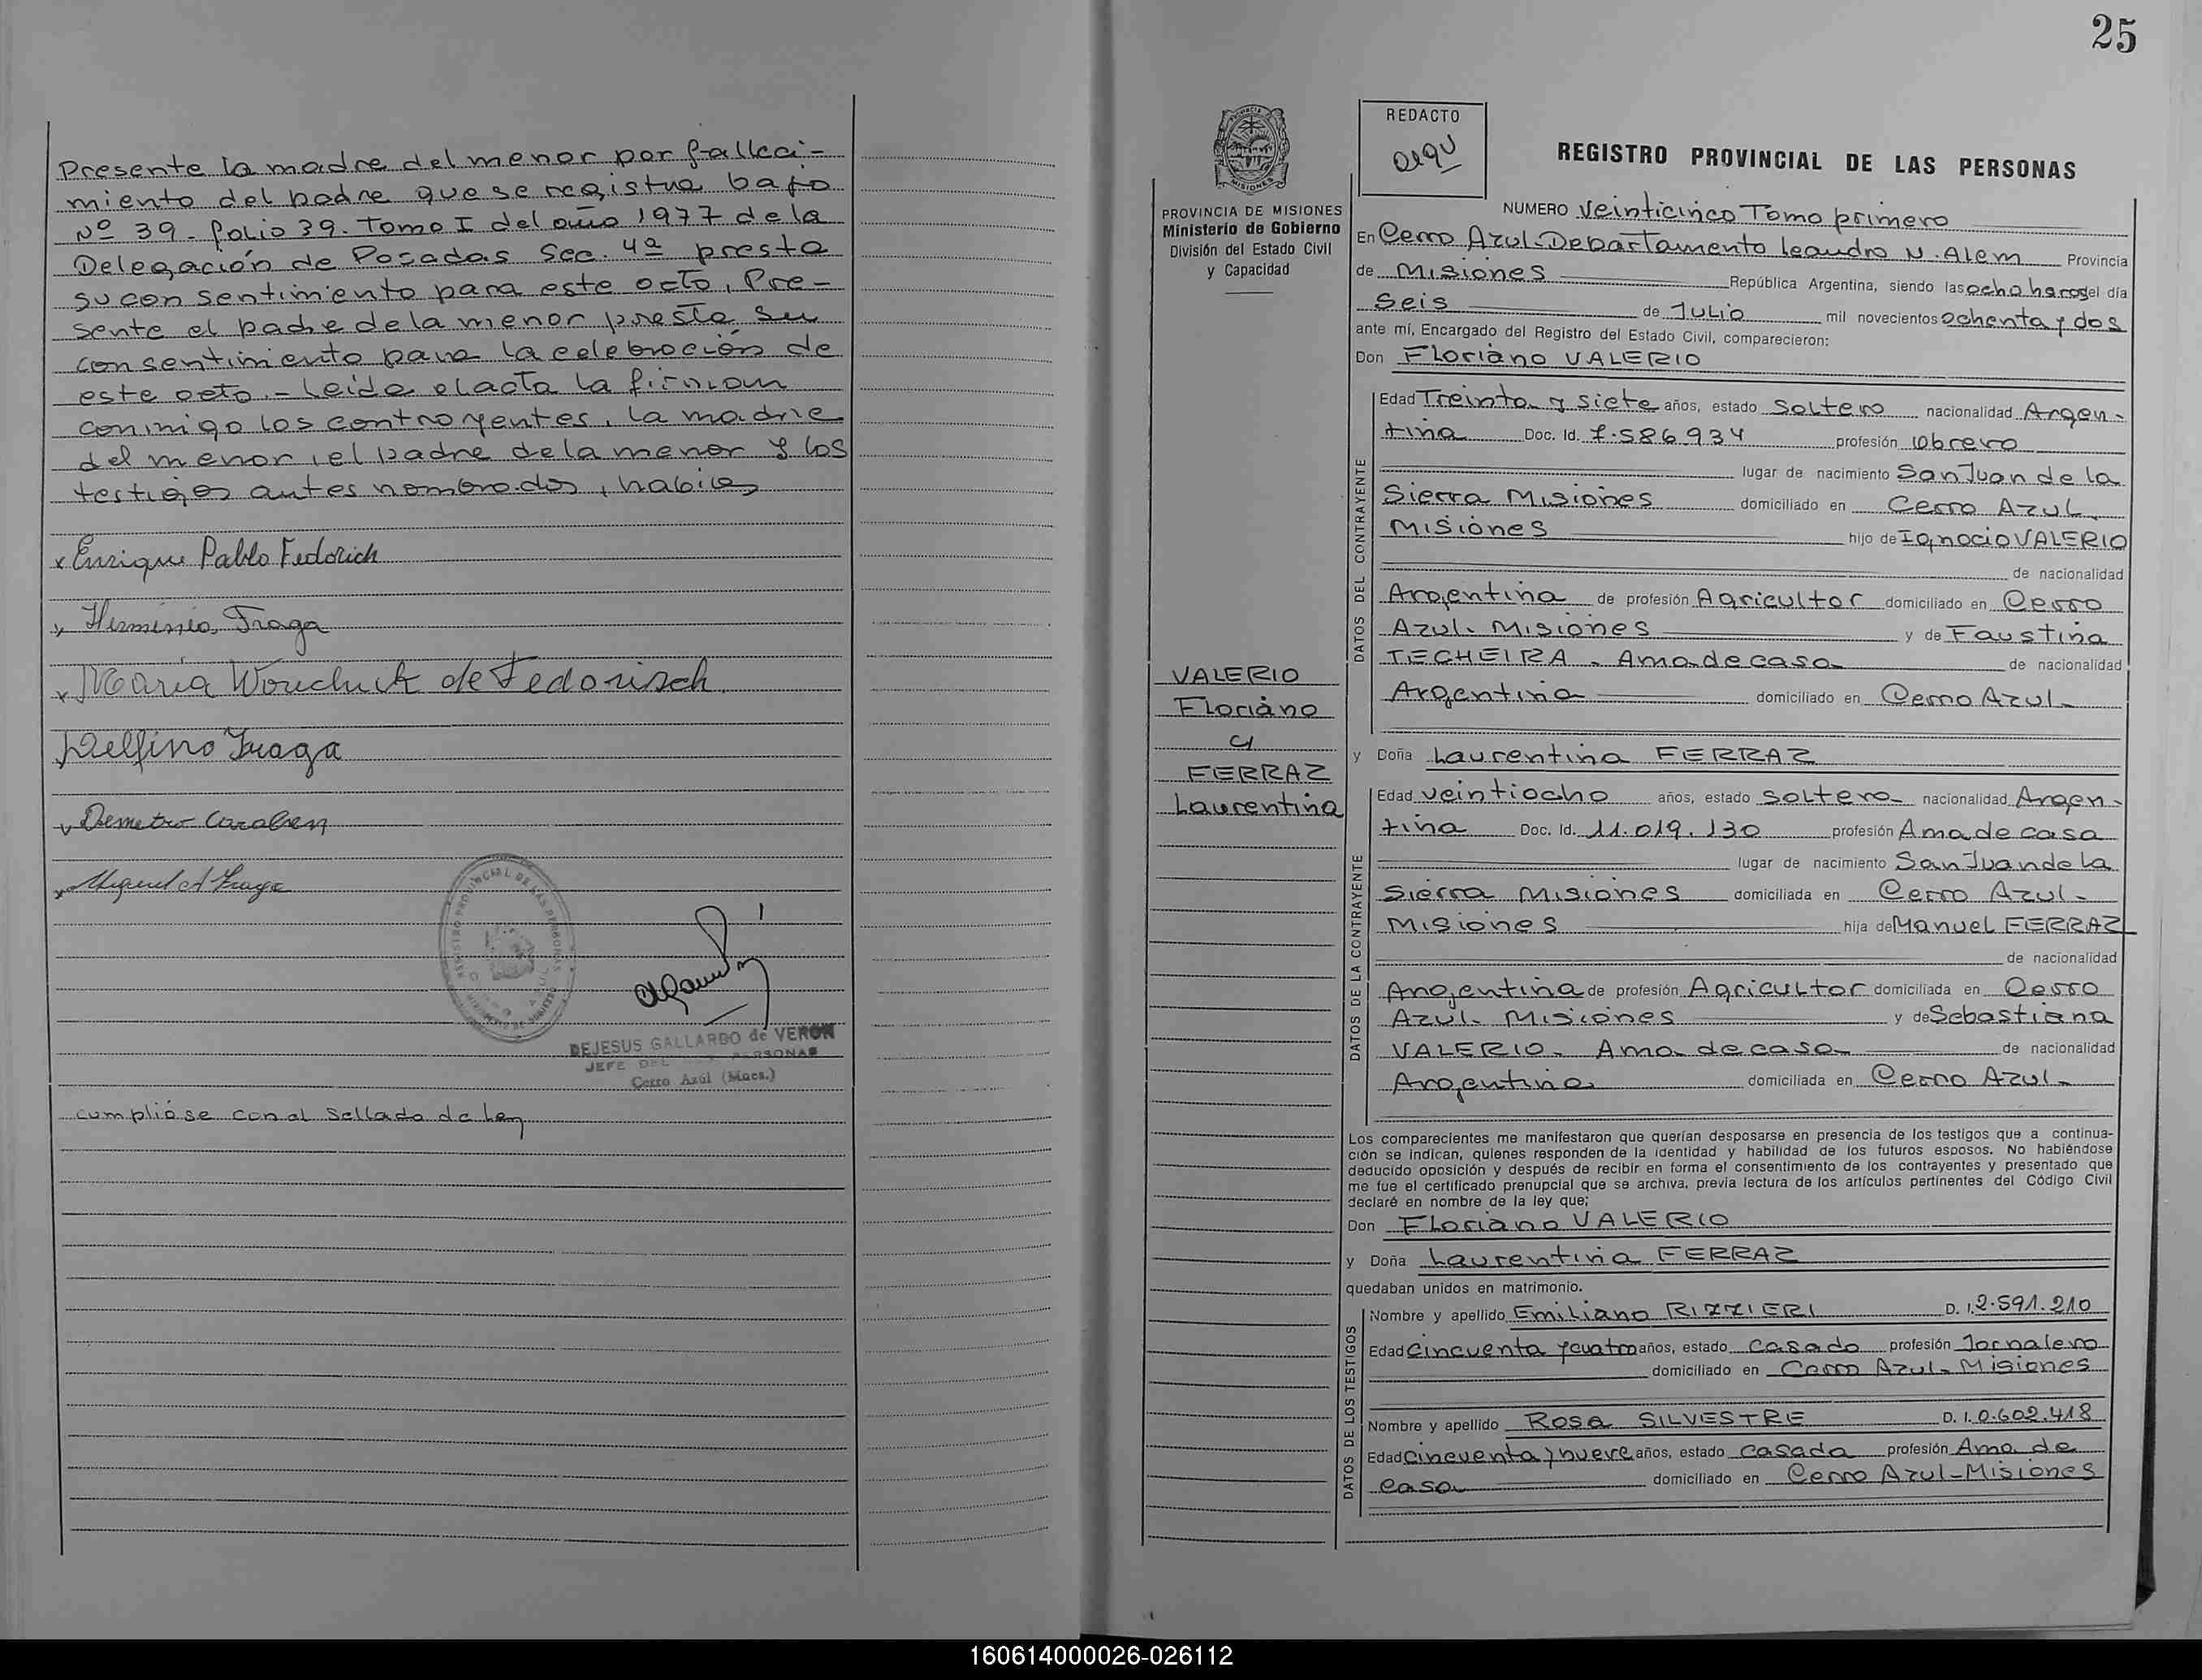 Presente la madre del menor por falleci-
miento del padre que se registra bajo
Nº 39 - folio 39. Tomo I del año 1977 de la
Delegación de Posadas Sec. 4ª presta
su consentimiento para este acto, Pre-
sente el padre de la menor presta su
consentimiento para la celebración de
este acto.- Leida el acta la firman
conmigo los contrayentes, la madre
del menor, el padre de la menor y los
testigos antes nombrados, habiles
x Enrique Pablo Fedorich
x Herminia Fraga
x Maria Wouchuk de Fedorisch
Delfino Fraga
x Demetrio
x Miguel A Fraga
REGISTRO PROVINCIAL DE LAS PERSONAS
DEJESUS GALLARDO de VERON
JEFE DEL PERSONAS
Cerro Azúl (Mnes.)
cumplióse con el Sellado de Ley
25
PROVINCIA DE MISIONES
Ministerio de Gobierno
División del Estado Civil
y Capacidad
VALERIO
Floriano
c/
FERRAZ
Laurentina
REDACTO
REGISTRO PROVINCIAL DE LAS PERSONAS
NUMERO Veinticinco Tomo primero
En Cerro Azul-Departamento Leandro N. Alem Provincia
de Misiones República Argentina, siendo las ocho horas del día
Seis de Julio mil novecientos ochenta y dos
ante mí, Encargado del Registro del Estado Civil, comparecieron:
Don Floriano VALERIO
DATOS DEL CONTRAYENTE
Edad Treinta y siete años, estado Soltero nacionalidad Argen-
tina Doc. Id. 7.586.934 profesión Obrero
lugar de nacimiento San Juan de la
Sierra Misiones domiciliado en Cerro Azul
Misiones hijo de Ignacio VALERIO
de nacionalidad
Argentina de profesión Agricultor domiciliado en Cerro
Azul. Misiones y de Faustina
TECHEIRA - Ama de casa de nacionalidad
Argentina domiciliado en Cerro Azul-
y Doña Laurentina FERRAZ
DATOS DE LA CONTRAYENTE
Edad veintiocho años, estado soltera nacionalidad Argen-
tina Doc. Id. 11.019.130 profesión Ama de casa
lugar de nacimiento San Juan de la
Sierra Misiones domiciliada en Cerro Azul-
Misiones hija de Manuel FERRAZ
de nacionalidad
Argentina de profesión Agricultor domiciliada en Cerro
Azul. Misiones y de Sebastiana
VALERIO. Ama de casa de nacionalidad
Argentina domiciliada en Cerro Azul-
Los comparecientes me manifestaron que querían desposarse en presencia de los testigos que a continua-
ción se indican, quienes responden de la identidad y habilidad de los futuros esposos. No habiéndose
deducido oposición y después de recibir en forma el consentimiento de los contrayentes y presentado que
me fue el certificado prenupcial que se archiva, previa lectura de los artículos pertinentes del Código Civil
declaré en nombre de la ley que;
Don Floriano VALERIO
y Doña Laurentina FERRAZ
quedaban unidos en matrimonio.
DATOS DE LOS TESTIGOS
Nombre y apellido Emiliano RIZZIERI D. I. 2.591.210
Edad Cincuenta y cuatro años, estado casado profesión Jornalero
domiciliado en Cerro Azul-Misiones
Nombre y apellido Rosa SILVESTRE D. I. 0.602.418
Edad Cincuenta y nueve años, estado casada profesión Ama de
casa domiciliado en Cerro Azul-Misiones
160614000026-026112